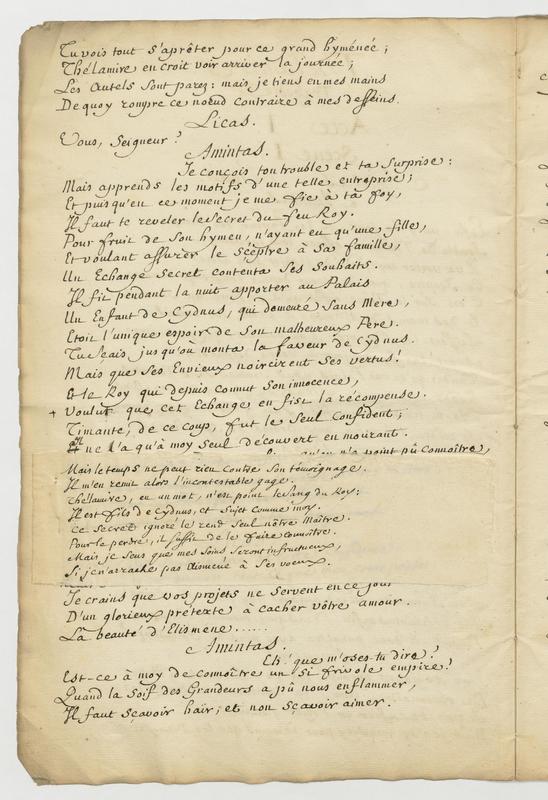 Tu vois tout s'aprêter pour ce grand hyménée;
Thélamire en croit voir arriver la journée;
Les Autels sont parez: mais je tiens en mes mains
De quoy rompre ce noeud contraire à mes desseins.
Licas.
Vous, Seigneur?
Amintas.
Je conçois ton trouble et ta surprise:
Mais apprends les motifs d'une telle entreprise;
Et puisqu'en ce moment je me fie à ta foy,
Il faut te reveler le secret du feu Roy.
Pour fruit de son hymen, n'ayant eu qu'une fille,
Et voulant assurer le Scêptre à sa famille,
Un Echange secret contenta ses souhaits.
Il fit pendant la nuit apporter au Palais
Un Enfant de Cydnus, qui demeuré sans Mere,
Etoit l'unique espoir de son malheureux Pere.
Tu sçais jusqu'où monta la faveur de Cydnus.
Mais que ses Envieux noircirent ses vertus!
Et le Roy qui depuis connut son innocence,
+ voulut que cet Echange en fist la récompense.
Timante, de ce coup, fut le seul Confident;
Il ne l'a qu'à moy seul découvert en mourant.
qu'on n'a point pû connoître,
Mais le temps ne peut rien contre son témoignage.
Il m'en remit alors l'incontestable gage.
Thélamire, en un mot, n'est point le sang du Roy:
Il est fils de Cydnus, et sujet comme moy.
Ce secret ignoré le rend seul nôtre Maître.
Pour le perdre, il suffit de le faire connoître.
Mais je sens que mes soins seront infructueux,
Si je n'arrache pas Elismene à ses voeux.
Je crains que vos projets ne servent en ce jour
D'un glorieux prétexte à cacher vôtre amour.
La beauté d'Elismene......
Amintas.
Eh! que m'oses-tu dire?
Est-ce à moy de connoître un si frivole empire?
Quand la soif des Grandeurs a pû nous enflammer,
Il faut sçavoir haïr, et non sçavoir aimer.